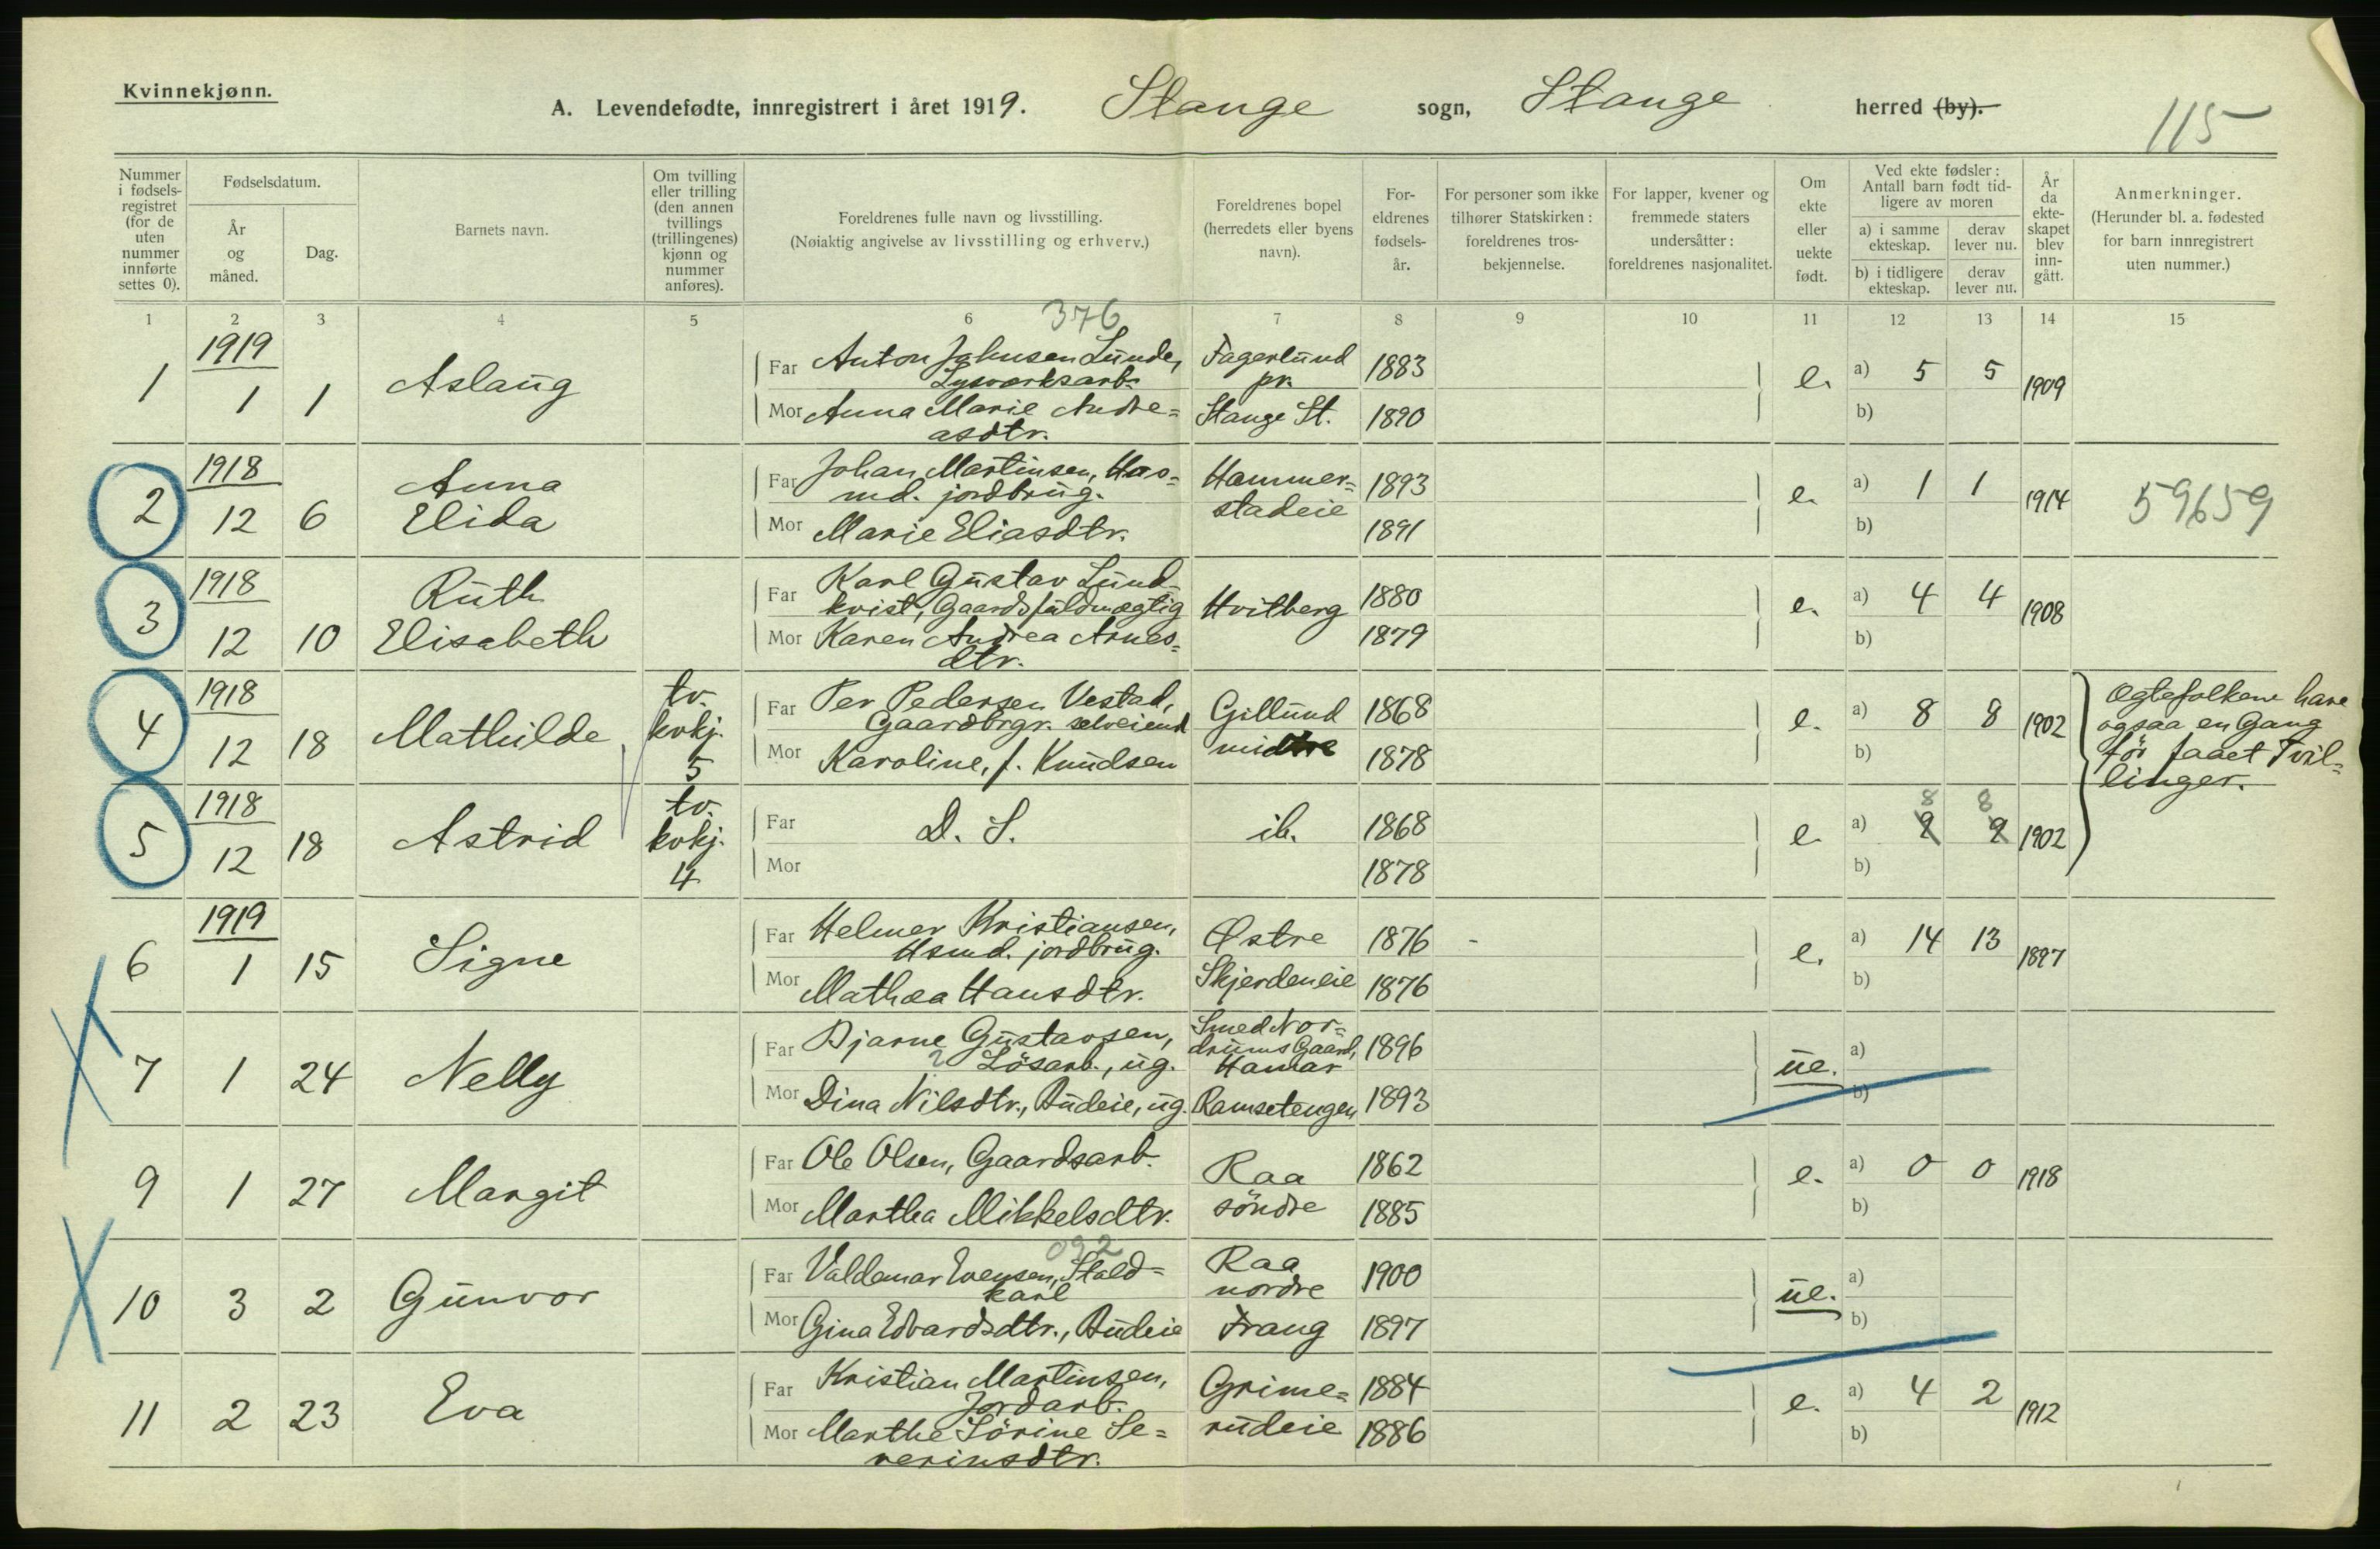 Kvinnekjønn.
A. Levendefødte, innregistrert i året 1919. Stange sogn, Stange herred (by).
115
Nummer i fødsels-registret (for de uten nummer innførte settes 0).
Fødselsdatum.
År og måned.
Dag.
Barnets navn.
Om tvilling eller trilling (den annen tvillings (trillingenes) kjønn og nummer anføres).
Foreldrenes fulle navn og livsstilling.
(Nøiaktig angivelse av livsstilling og erhverv.)
Foreldrenes bopel (herredets eller byens navn).
For-eldrenes fødsels-år.
For personer som ikke tilhører Statskirken: foreldrenes tros-bekjennelse.
For lapper, kvener og fremmede staters undersåtter: foreldrenes nasjonalitet.
Om ekte eller uekte født.
Ved ekte fødsler: Antall barn født tid-ligere av moren
a) i samme ekteskap.
derav lever nu.
b) i tidligere ekteskap.
derav lever nu.
År da ekte-skapet blev inn-gått.
Anmerkninger.
(Herunder bl. a. fødested for barn innregistrert uten nummer.)
1 2 3 4 5 6 7 8 9 10 11 12 13 14 15
376
1919
1 1 1 Aslaug
Far Anton Johnsen Lunde, Fagerlund 1883 e. a) 5 5 1909
Lysverksarb. pr.
Mor Anna Marie Andre= Stange St. 1890 b)
asdtr.
1918
2 12 6 Anna
Elida
Far Johan Martinsen, Hus= Hammer= 1893 e. a) 1 1 1914 59659
md. jordbrug. stadeie
Mor Marie Eliasdtr. 1891 b)
1918
3 12 10 Ruth
Elisabeth
Far Karl Gustav Lund= 1880 e. a) 4 4 1908
kvist, Gaardsfuldmægtig Hvitberg
Mor Karen Andrea Arnes= 1879 b)
dtr.
1918
4 12 18 Mathilde tv.
kvkj.
5
Far Per Pedersen Vestad, Gillund 1868 e. a) 8 8 1902
Gaardbrgr. selveiend midtre
Mor Karoline, f. Knudsen 1878 b)
Ægtefolkene have
ogsaa en Gang
før faaet Tvil=
linger.
1918
5 12 18 Astrid tv.
kvkj.
4
Far D. S. ib. 1868 e. a) 8 8 1902
9 9
Mor 1878 b)
1919
6 1 15 Signe
Far Helmer Kristiansen, Østre 1876 - e. a) 14 13 1897
Hsmd. jordbrug.
Mor Mathea Hansdtr. Skjerdeneie 1876 b)
7 1 24 Nelly
Far Bjarne Gustavsen, Smed Nor= 1896 ue. a)
Lösarb., ug. drums Gaard,
Hamar
Mor Dina Nilsdtr., Budeie, ug. Ramsetengen 1893 b)
9 1 27 Margit
Far Ole Olsen, Gaardsarb. Raa 1862 e. a) 0 0 1918
Mor Martha Mikkelsdtr. söndre 1885 b)
092
10 3 2 Gunvor
Far Valdemar Evensen, Stald= Raa 1900 ue. a)
karl nordre
Mor Gina Edvardsdtr., Budeie Frang 1897 b)
11 2 23 Eva
Far Kristian Martinsen, Grime= 1884 e. a) 4 2 1912
Jordarb.
Mor Marthe Sörine Se= rudeie 1886 b)
verinsdtr.